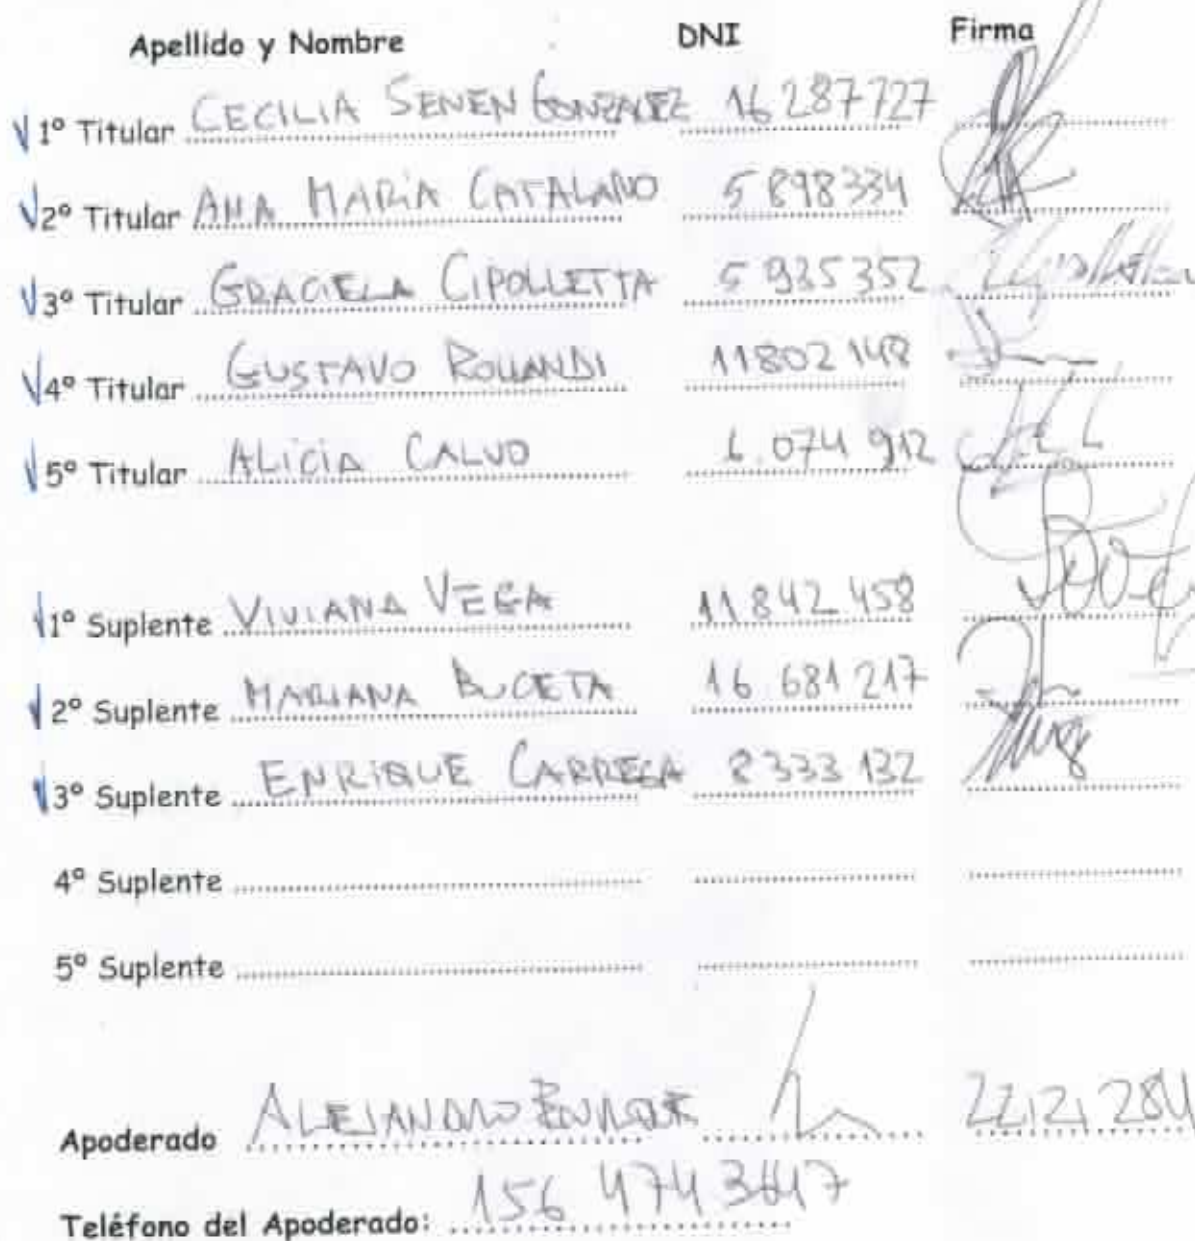 Apellido y Nombre DNI Firma
1º Titular CECILIA SENEN GONZALEZ 16 287727
2º Titular ANA MARIA CATALANO 5 898334
3º Titular GRACIELA CIPOLLETTA 5 935352
4º Titular GUSTAVO ROLLANDI 11802 148
5º Titular ALICIA CALVO 6.074 912
1º Suplente VIVIANA VEGA 11 842 458
2º Suplente MARIANA BUCETA 16.681 217
3º Suplente ENRIQUE CARREGA 8 333 132
4º Suplente
5º Suplente
Apoderado ALEJANDRO
Teléfono del Apoderado: 156 474